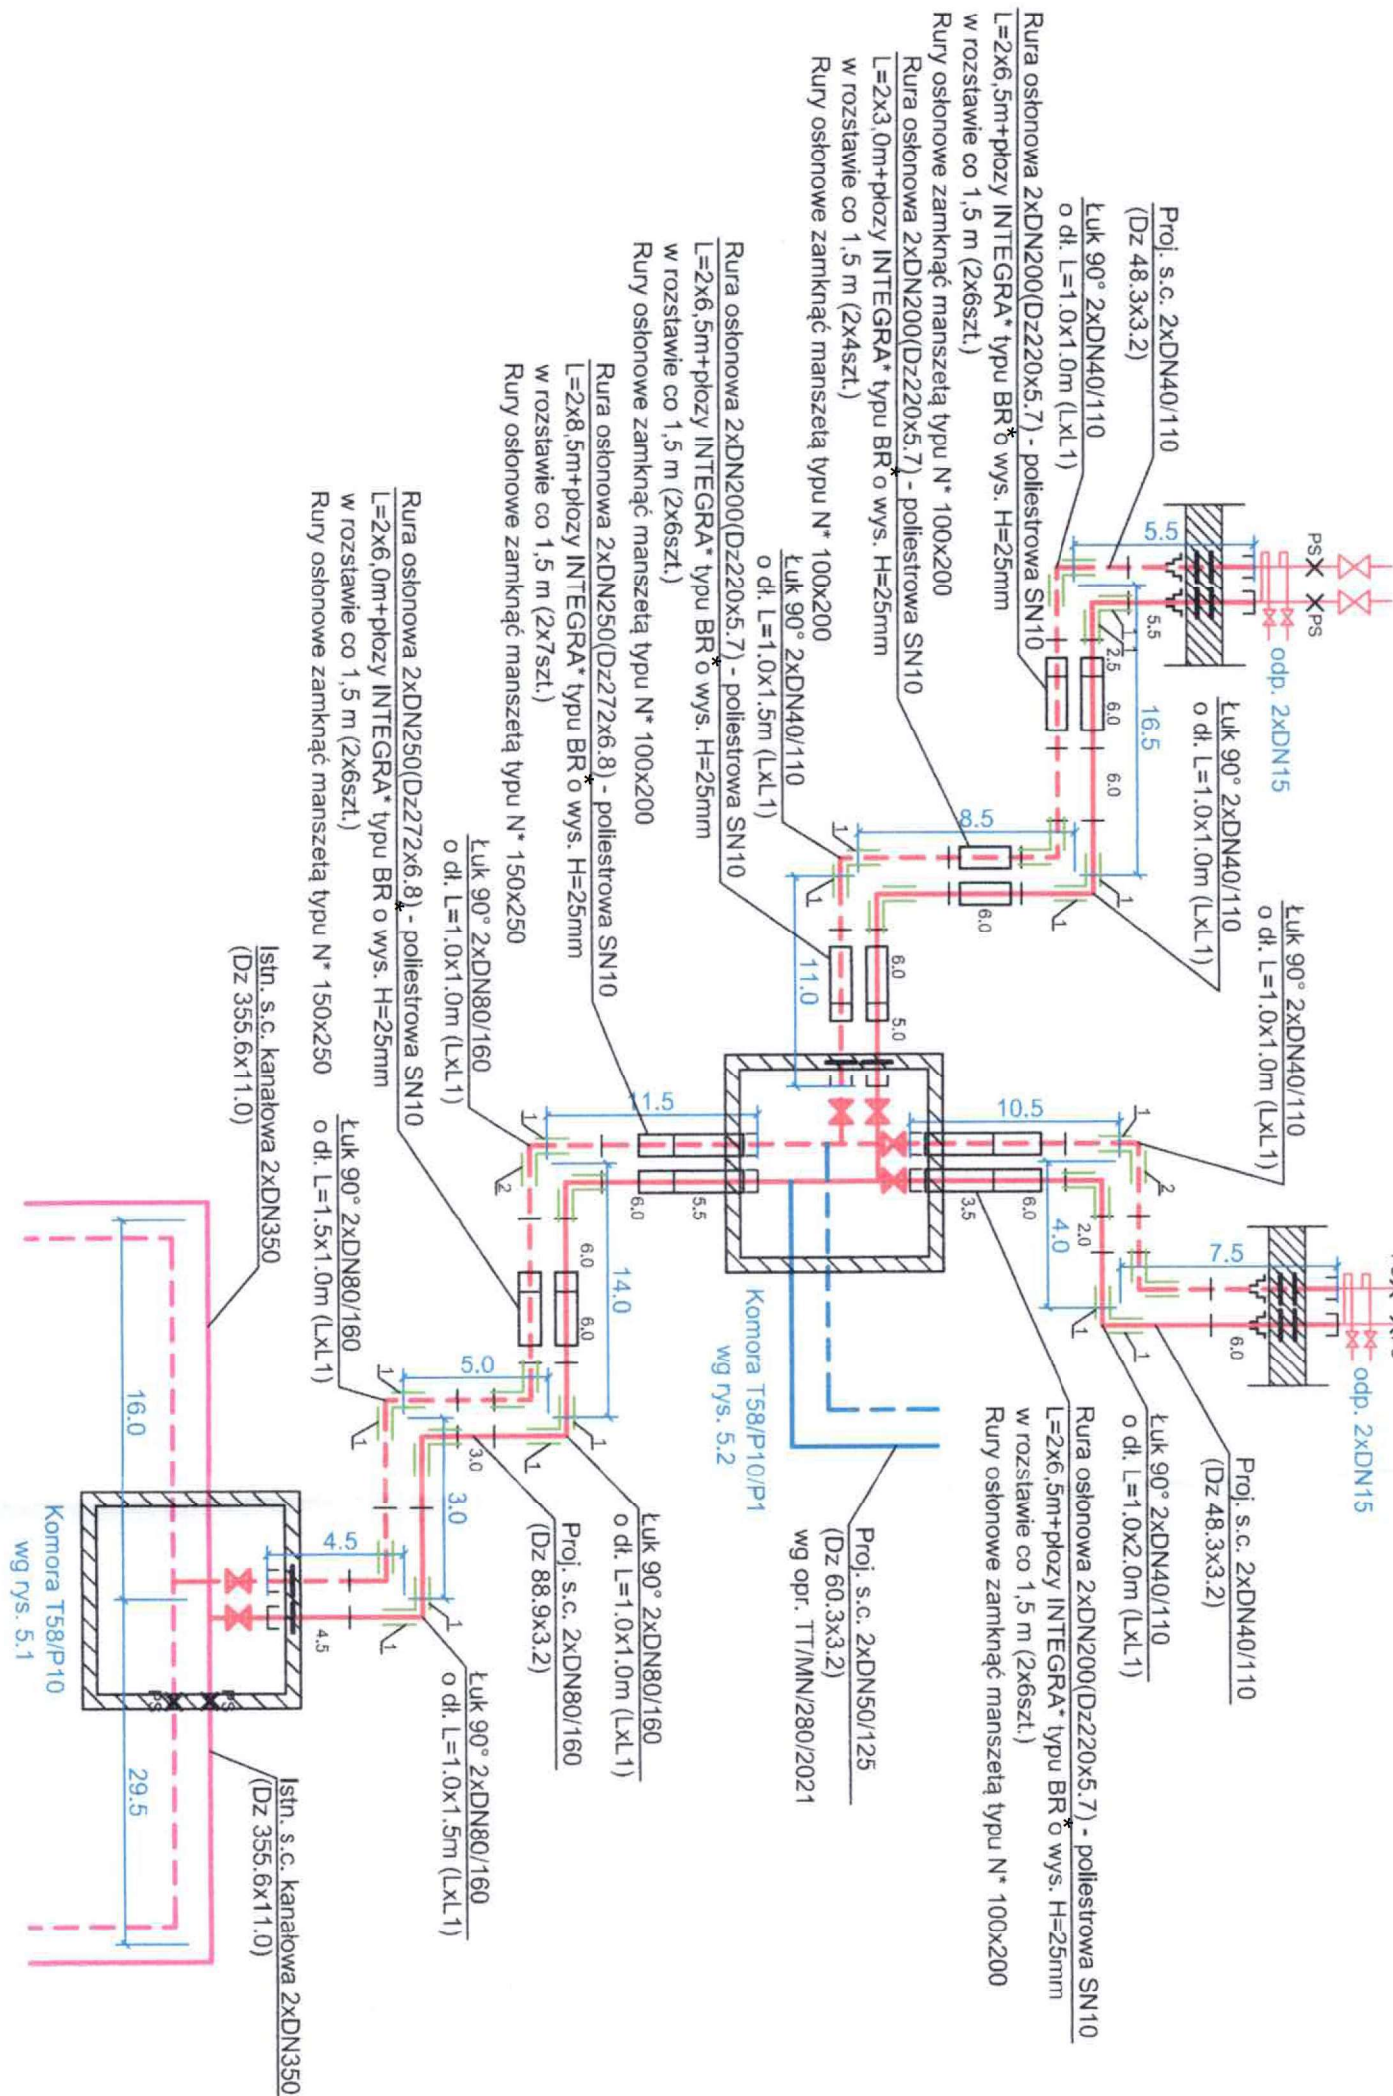 Proj. s.c. 2xDN40/110
(Dz 48.3x3.2)
Łuk 90° 2xDN40/110
o dł. L=1.0x1.0m (LxL1)
Rura osłonowa 2xDN200(Dz220x5.7) - poliestrowa SN10
L=2x6,5m+płozy INTEGRA* typu BR* o wys. H=25mm
w rozstawie co 1,5 m (2x6szt.)
Rury osłonowe zamknąć manszetą typu N* 100x200
Rura osłonowa 2xDN200(Dz220x5.7) - poliestrowa SN10
L=2x3,0m+płozy INTEGRA* typu BR* o wys. H=25mm
w rozstawie co 1,5 m (2x4szt.)
Rury osłonowe zamknąć manszetą typu N* 100x200
Łuk 90° 2xDN40/110
o dł. L=1.0x1.5m (LxL1)
Rura osłonowa 2xDN200(Dz220x5.7) - poliestrowa SN10
L=2x6,5m+płozy INTEGRA* typu BR* o wys. H=25mm
w rozstawie co 1,5 m (2x6szt.)
Rury osłonowe zamknąć manszetą typu N* 100x200
Rura osłonowa 2xDN250(Dz272x6.8) - poliestrowa SN10
L=2x8,5m+płozy INTEGRA* typu BR* o wys. H=25mm
w rozstawie co 1,5 m (2x7szt.)
Rury osłonowe zamknąć manszetą typu N* 150x250
Łuk 90° 2xDN80/160
o dł. L=1.0x1.0m (LxL1)
Rura osłonowa 2xDN250(Dz272x6.8) - poliestrowa SN10
L=2x6,0m+płozy INTEGRA* typu BR* o wys. H=25mm
w rozstawie co 1,5 m (2x6szt.)
Rury osłonowe zamknąć manszetą typu N* 150x250
Łuk 90° 2xDN80/160
o dł. L=1.5x1.0m (LxL1)
Istn. s.c. kanałowa 2xDN350
(Dz 355.6x11.0)
PS
PS
odp. 2xDN15
5.5
5.5
1
1
2.5
6.0
16.5
6.0
Łuk 90° 2xDN40/110
o dł. L=1.0x1.0m (LxL1)
1
1
8.5
6.0
1
1
11.0
6.0
5.0
Łuk 90° 2xDN40/110
o dł. L=1.0x1.0m (LxL1)
10.5
1
2
3.5
6.0
2.0
4.0
7.5
1
1
6.0
odp. 2xDN15
Proj. s.c. 2xDN40/110
(Dz 48.3x3.2)
Łuk 90° 2xDN40/110
o dł. L=1.0x2.0m (LxL1)
Rura osłonowa 2xDN200(Dz220x5.7) - poliestrowa SN10
L=2x6,5m+płozy INTEGRA* typu BR* o wys. H=25mm
w rozstawie co 1,5 m (2x6szt.)
Rury osłonowe zamknąć manszetą typu N* 100x200
Komora T58/P10/P1
wg rys. 5.2
Proj. s.c. 2xDN50/125
(Dz 60.3x3.2)
wg opr. TT/MN/280/2021
11.5
5.5
6.0
1
2
6.0
14.0
6.0
5.0
1
1
1
1
3.0
3.0
Łuk 90° 2xDN80/160
o dł. L=1.0x1.0m (LxL1)
Proj. s.c. 2xDN80/160
(Dz 88.9x3.2)
Łuk 90° 2xDN80/160
o dł. L=1.0x1.5m (LxL1)
1
1
4.5
4.5
16.0
29.5
Komora T58/P10
wg rys. 5.1
PS
PS
Istn. s.c. kanałowa 2xDN350
(Dz 355.6x11.0)